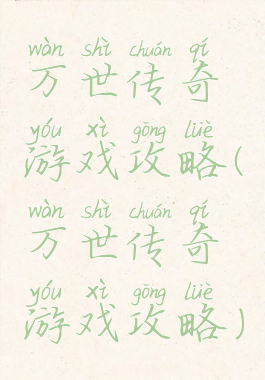 wàn shì chuán qí
万世传奇
yóu xì gōng lüè
游戏攻略(
wàn shì chuán qí
万世传奇
yóu xì gōng lüè
游戏攻略)